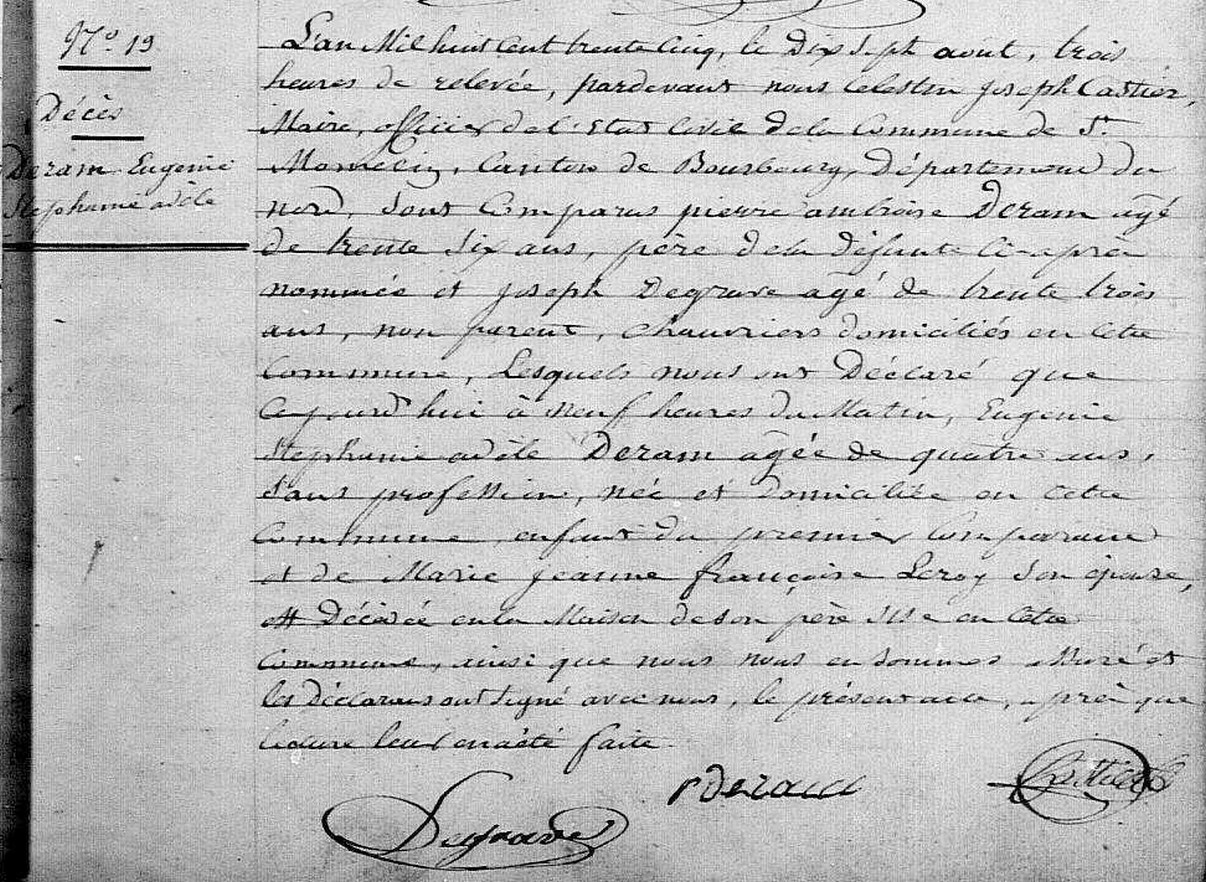 N.o 19
Décès
Deram Eugenie
Stephanie adèle
L'an Mil huit Cent trente Cinq, le Dix Sept aout, trois
heures de relevée, pardevant nous Celestin Joseph Castier,
Maire, officier de l'Etat Civil de la Commune de St.
Momelin, Canton de Bourbourg, Département du
nord, Sont Comparus pierre ambroise Deram agé
de trente Six ans, père de la défunte Ci-après
nommée et Joseph Degrave agé de trente trois
ans, non parent, domiciliés en Cette
Commune, Lesquels nous ont Déclaré que
Cejourd'hui à Neuf heures du Matin, Eugenie
Stephanie adèle Deram agée de quatre ans,
Sans profession, née et domiciliée en Cette
Commune, enfant du premier Comparant
et de Marie Jeanne françoise Leroy Son épouse,
est Décédée en la Maison de son père Sise en Cette
Commune, ainsi que nous nous en Sommes assuré et
les déclarans ont signé avec nous, le présent acte, après que
lecture leur en a été faite.
pderam
Castier
Degrave